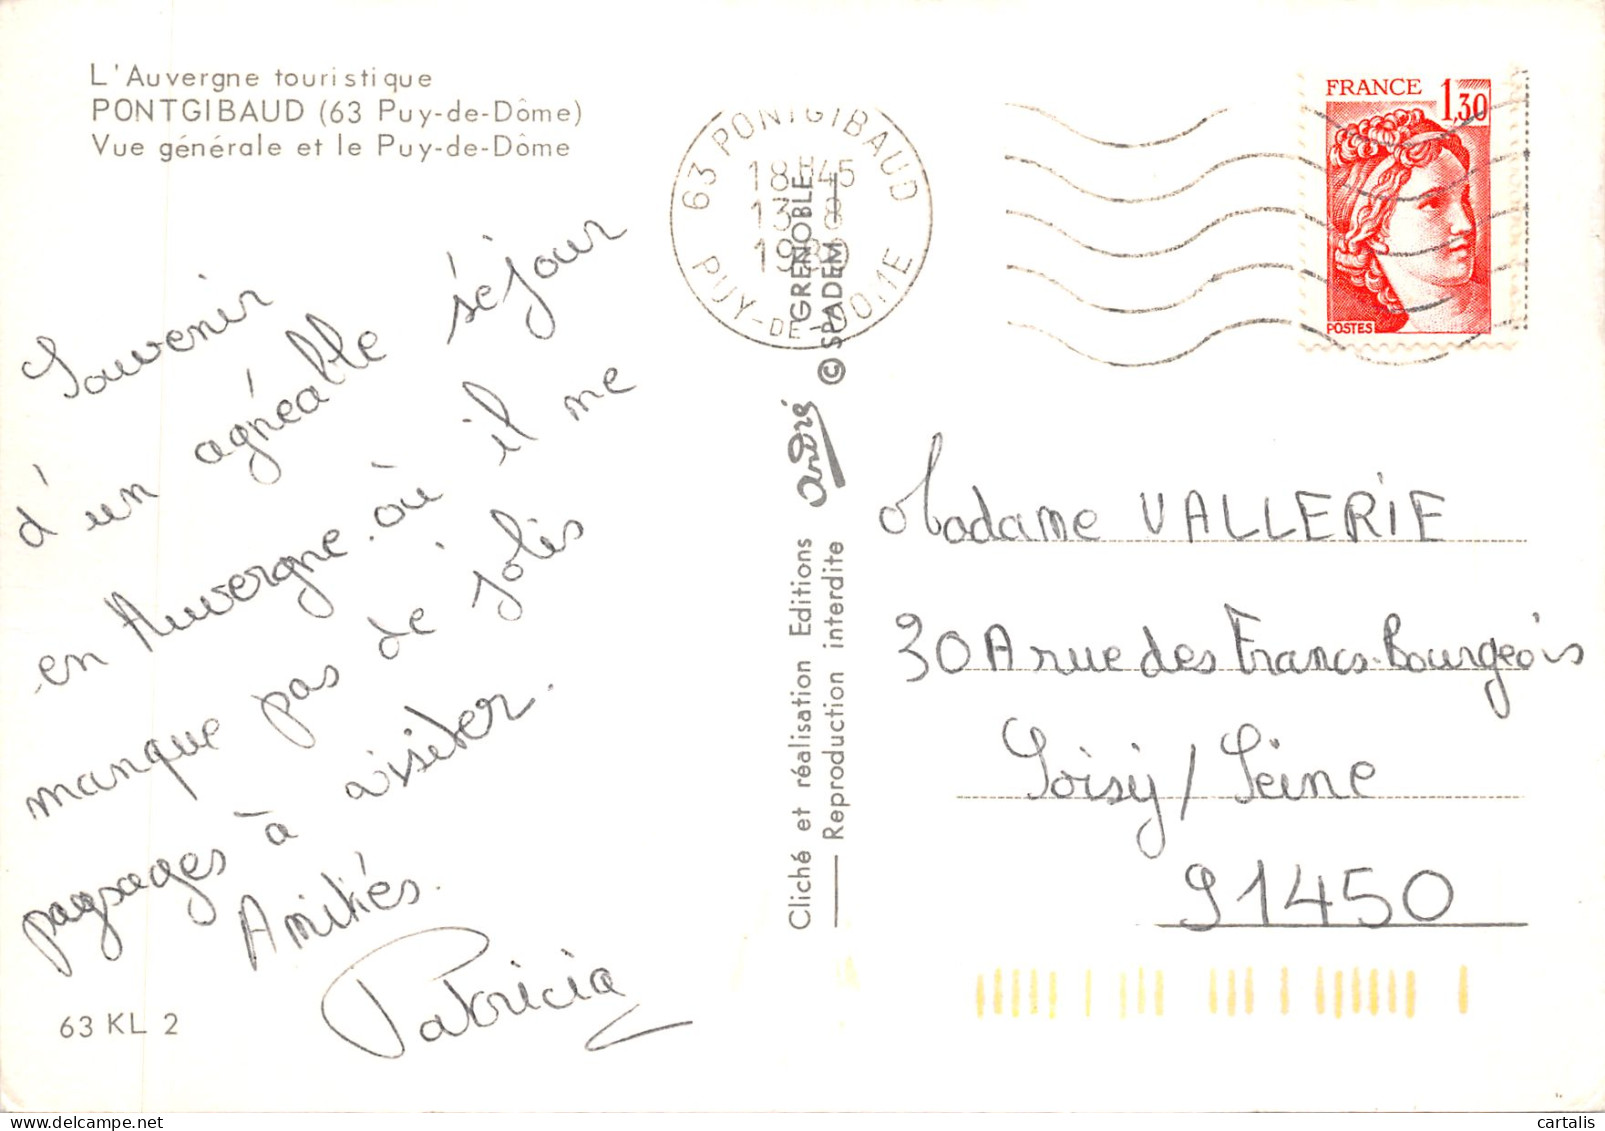 L'Auvergne touristique
PONTGIBAUD (63 Puy-de-Dôme)
Vue générale et le Puy-de-Dôme
Souvenir
d'un agréable séjour
en Auvergne où il ne
manque pas de jolis
paysages à visiter.
Amitiés.
Patricia
63 KL 2
63 PONTGIBAUD
18H45
13-8
1980
PUY-DE-DOME
GRENOBLE
© SPADEM
André
Cliché et réalisation Editions
Reproduction interdite
FRANCE
1,30
POSTES
Madame VALLERIE
30A rue des Francs-Bourgeois
Soisy/Seine
91450
cartalis